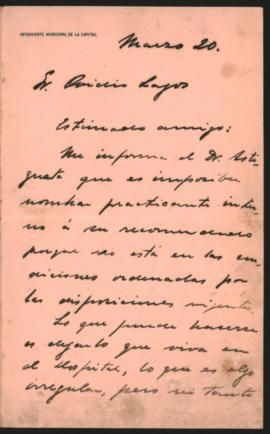 INTENDENTE MUNICIPAL DE LA CAPITAL
Marzo 20.
Sr. Ovidio Lagos
Estimado amigo:
Me informa el Dr. Astigueta que es imposible
nombrar practicante inter
no á su recomendado
porque no está en las con
diciones ordenadas por
las disposiciones vigentes.
Lo que puede hacerse
es dejarlo que viva en
el hospital, lo que es algo
irregular, pero no tanto